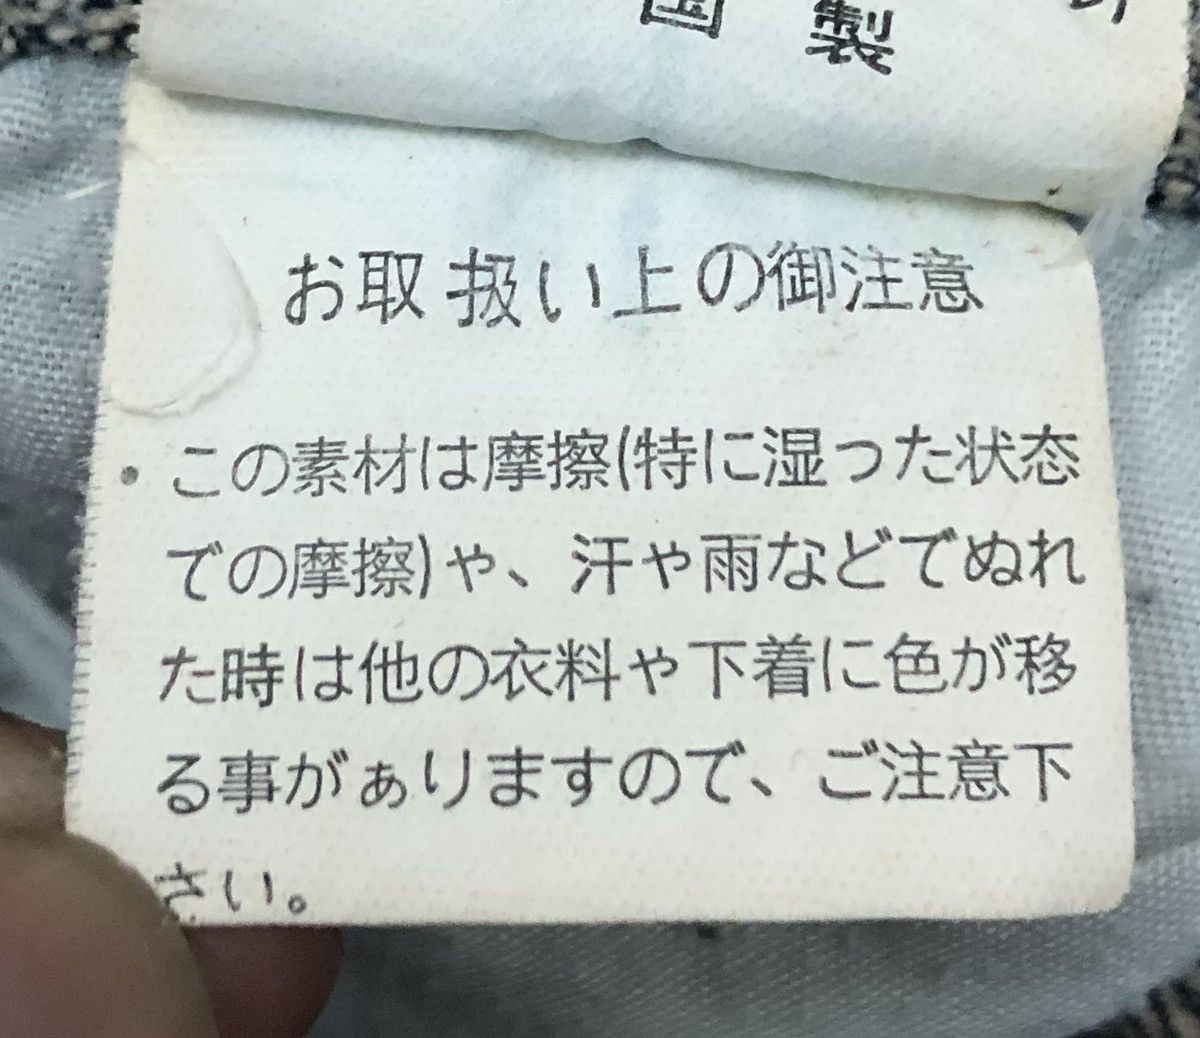 国製
お取扱い上の御注意
・この素材は摩擦(特に湿った状態
での摩擦)や、汗や雨などでぬれ
た時は他の衣料や下着に色が移
る事がぁりますので、ご注意下
さい。